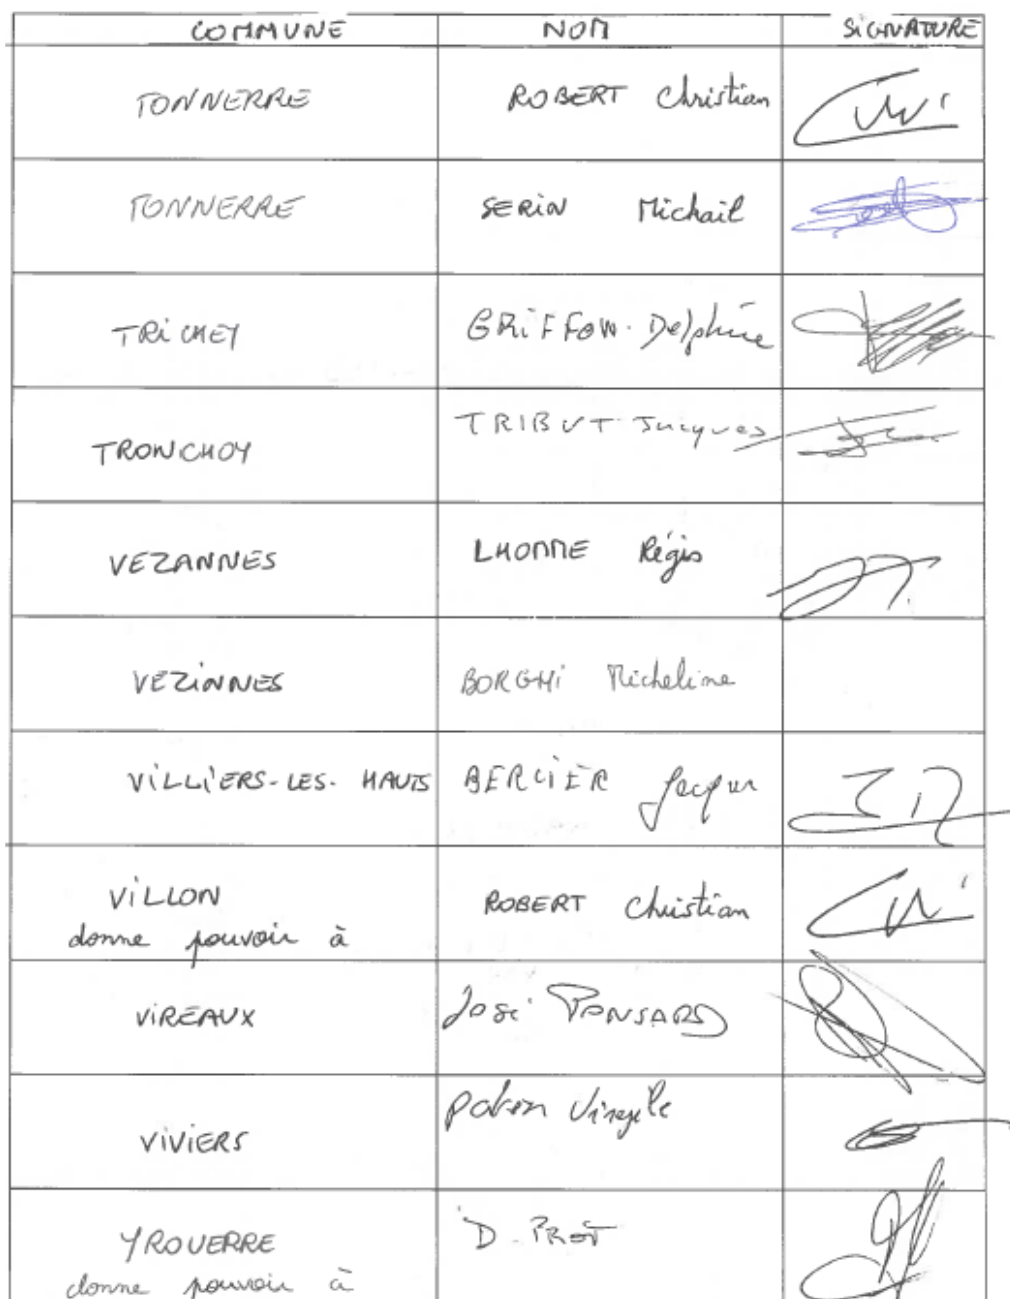 COMMUNE NOM SIGNATURE
TONNERRE ROBERT Christian
TONNERRE SERIN Michail
TRICHEY GRIFFON Delphine
TRONCHOY TRIBUT Jacques
VEZANNES LHOMME Régis
VEZINNES BORGHI Micheline
VILLIERS-LES-HAUTS BERCIER Jacques
VILLON ROBERT Christian
donne pouvoir à
VIREAUX José PONSARD
VIVIERS Virgile
YROUERRE D. PROT
donne pouvoir à